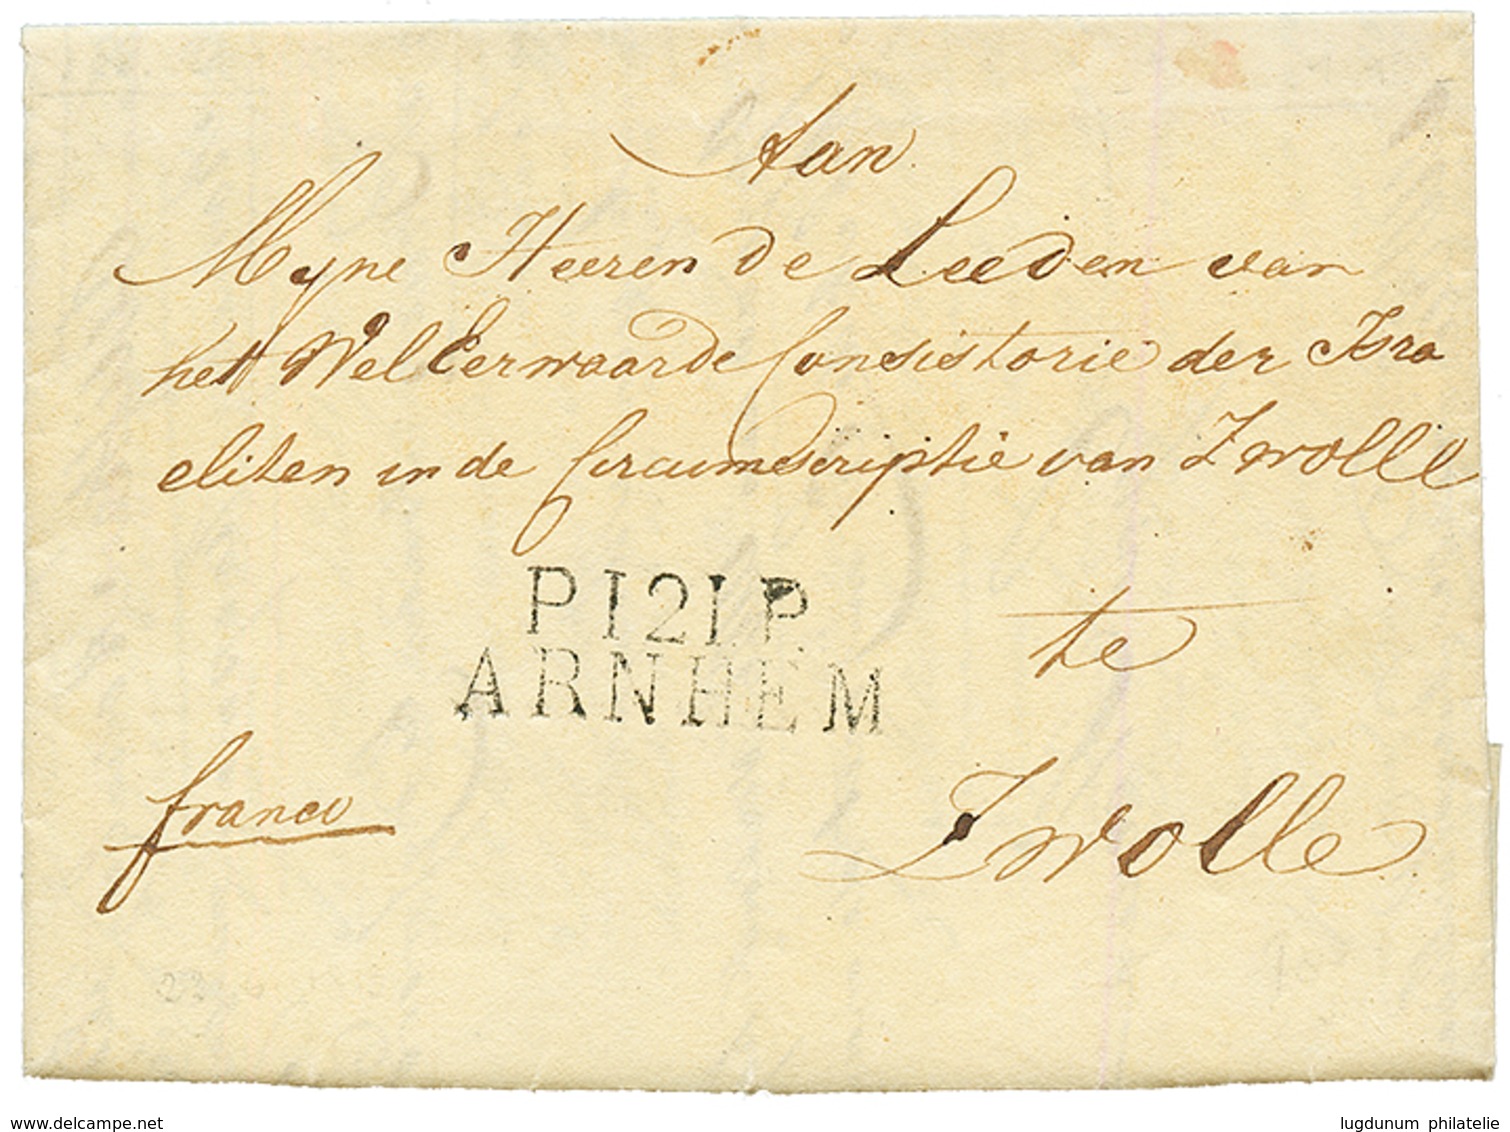 Aan
Myne Heeren de Leeden van
het Wel Eerwaarde Consistorie der Isra
eliten in de Circumscriptie van Zwolle
P121P
ARNHEM
te
franco
Zwolle
www.delcampe.net
lugdunum philatelie